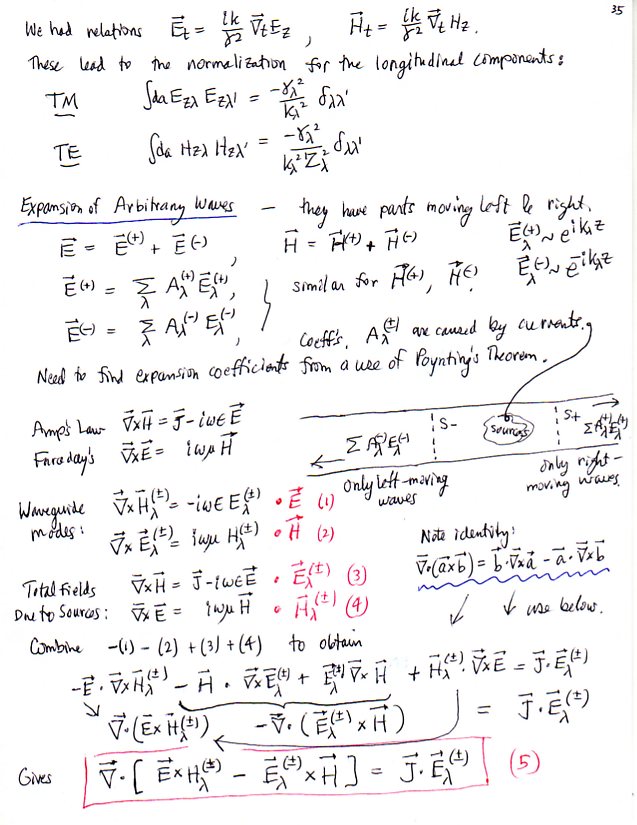 35
We had relations E⃗t = ik/γ² ∇⃗t Ez , H⃗t = ik/γ² ∇⃗t Hz.
These lead to the normalization for the longitudinal components:
TM ∫da Ezλ Ezλ' = -γλ²/kλ² δλλ'
TE ∫da Hzλ Hzλ' = -γλ²/kλ²Zλ² δλλ'
Expansion of Arbitrary Waves — they have parts moving left & right.
E⃗ = E⃗(+) + E⃗(-) , H⃗ = H⃗(+) + H⃗(-) E⃗λ(+) ~ e^ikλz
E⃗(+) = Σλ Aλ(+) E⃗λ(+), similar for H⃗(+), H⃗(-) E⃗λ(-) ~ e^-ikλz
E⃗(-) = Σλ Aλ(-) Eλ(-),
Coeff's. Aλ(±) are caused by currents.
Need to find expansion coefficients from a use of Poynting's Theorem.
Amp's Law ∇⃗×H⃗ = J⃗ - iωε E⃗
Faraday's ∇⃗×E⃗ = iωμ H⃗
S- sources S+
Σ Aλ(-) Eλ(-) Σ Aλ(+) Eλ(+)
only left-moving waves
only right-moving waves
Waveguide modes: ∇⃗×H⃗λ(±) = -iωε Eλ(±) • E⃗ (1)
∇⃗×E⃗λ(±) = iωμ Hλ(±) • H⃗ (2)
Note identity:
∇⃗·(a⃗×b⃗) = b⃗·∇⃗×a⃗ - a⃗·∇⃗×b⃗
use below.
Total fields ∇⃗×H⃗ = J⃗ - iωε E⃗ • E⃗λ(±) (3)
Due to Sources: ∇⃗×E⃗ = iωμ H⃗ • H⃗λ(±) (4)
Combine -(1) - (2) + (3) + (4) to obtain
-E⃗·∇⃗×H⃗λ(±) - H⃗·∇⃗×E⃗λ(±) + E⃗λ(±)·∇⃗×H⃗ + H⃗λ(±)·∇⃗×E⃗ = J⃗·E⃗λ(±)
∇⃗·(E⃗×H⃗λ(±)) -∇⃗·(E⃗λ(±)×H⃗) = J⃗·E⃗λ(±)
Gives ∇⃗·[ E⃗×Hλ(±) - E⃗λ(±)×H⃗ ] = J⃗·E⃗λ(±) (5)